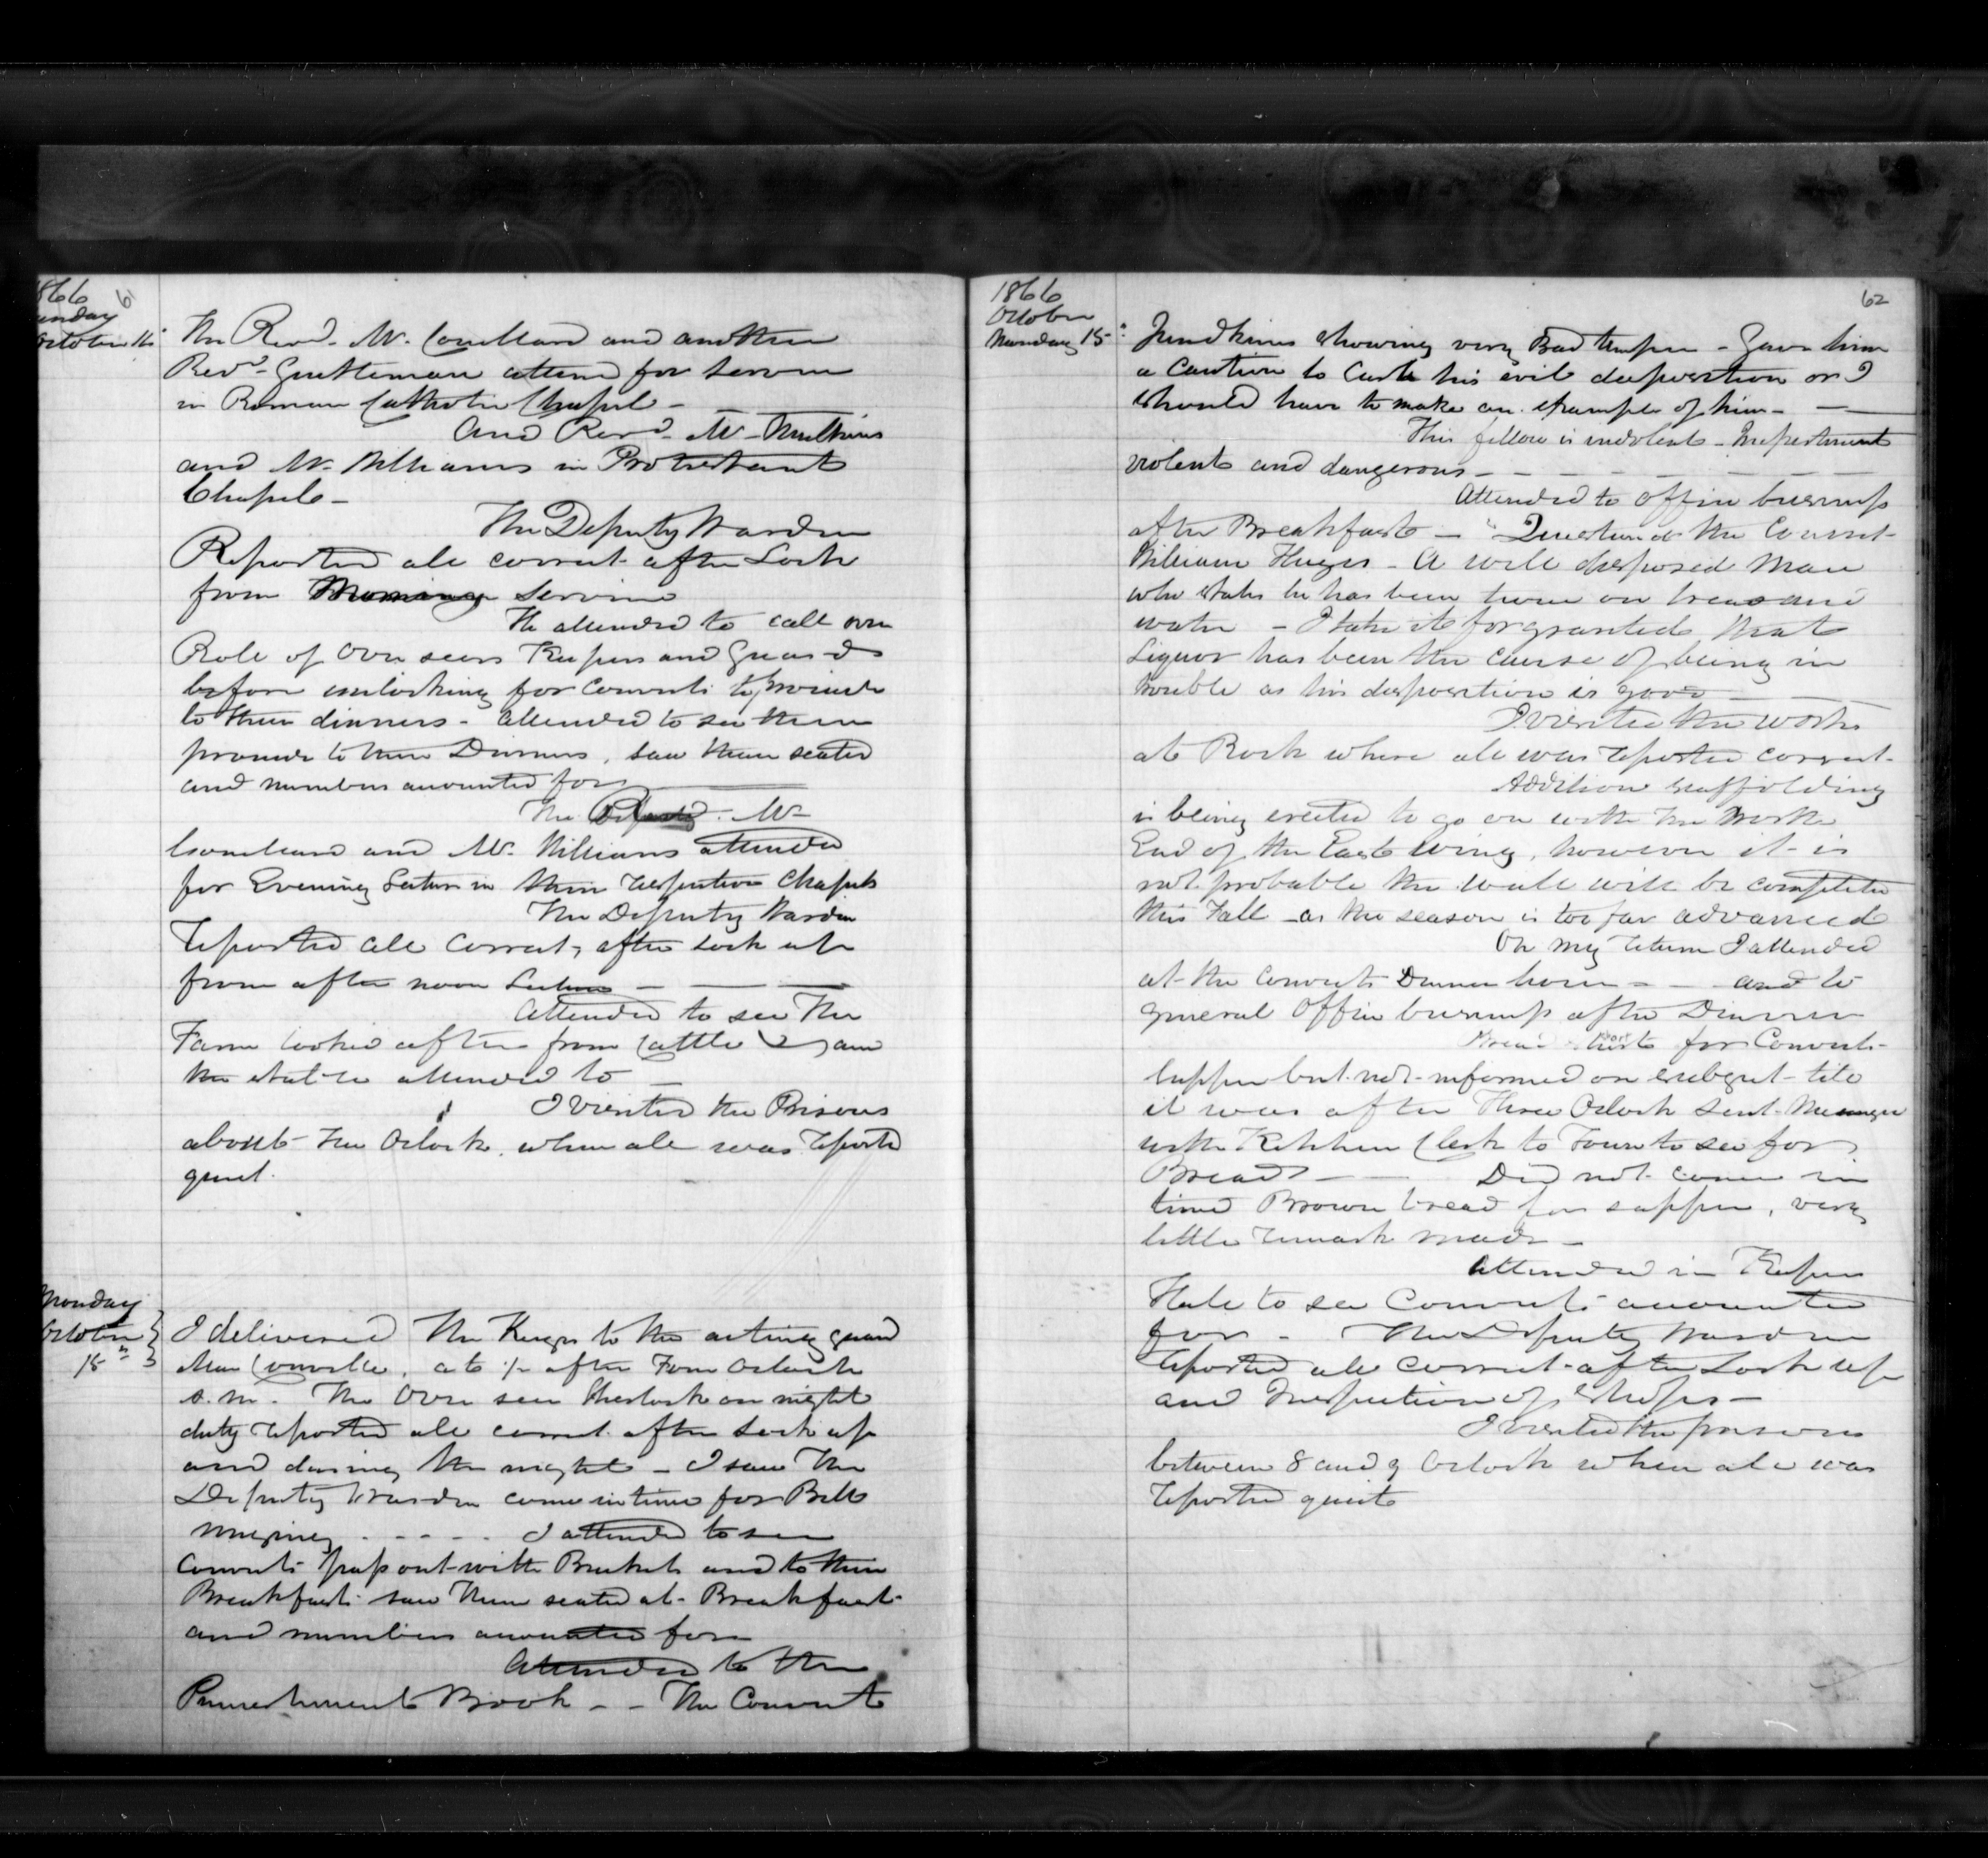 1866
61
Sunday
October 14
The Revd. Mr. and another
Revd. Gentleman attend for Service
in Roman Catholic Chapel -
And Revd. Mr. Mulkins
and Mr. Williams in Protestant
Chapel -
The Deputy Warden
Reported all correct after Lock
from Morning Service
He attended to call over
Role of Over seers Keepers and Guards
before unlocking for Convicts to proceed
to their dinners - attended to see them
proceed to their Dinners, saw them seated
and numbers accounted for
The Mr
and Mr. Williams attended
for Evening Lecture in their respective Chapels
The Deputy Warden
reported all correct, after lock up
from after noon Lecture -
Attended to see the
Farm looked after from Cattle and
the stable attended to -
I visited the Prisons
about Oclock, when all was reported
quiet.
Monday
October
15th
I delivered the Keys to the acting guard
, at 1/2 after Four Oclock
a.m. The Over seer Sherlock on night
duty reported all correct after lock up
and during the night - I saw the
Deputy Warden come in time for Bell
ringing - - - - I attended to see
Convicts pass out with Buckets and to their
Breakfast saw them seated at Breakfast
and numbers accounted for
Attended to the
Punishment Book - - The Convict
1866
October
Monday 15th
62
showing very Bad temper - Gave him
a Caution to Curb his evil disposition or I
should have to make an example of him -
This fellow is indolent - Impertinent
violent and dangerous -
Attended to office business
after Breakfast - Questioned the Convict
William - A well disposed Man
who states he has been twice on bread and
water - I take it for granted that
Liquor has been the cause of being in
trouble as his disposition is good
I visited the works
at Rock where all was reported correct.
Addition scaffolding
is being erected to go on with the North
End of the East wing, however it is
not probable the wall will be completed
this Fall - as the season is too far advanced
On my return I attended
at the Convicts Dinner hour - - and to
general Office business after Dinner
Bread short for Convicts
supper but not informed on subject till
it was after Three Oclock sent Messenger
with Kitchen Clerk to Town to see for
Bread - Did not come in
time Brown bread for supper, very
little remark made -
Attended in Keepers
Hall to see Convicts accounted
for - The Deputy Warden
reported all correct after Lock up
and Inspection of Shops -
I visited the prisons
between 8 and 9 Oclock when all was
reported quiet